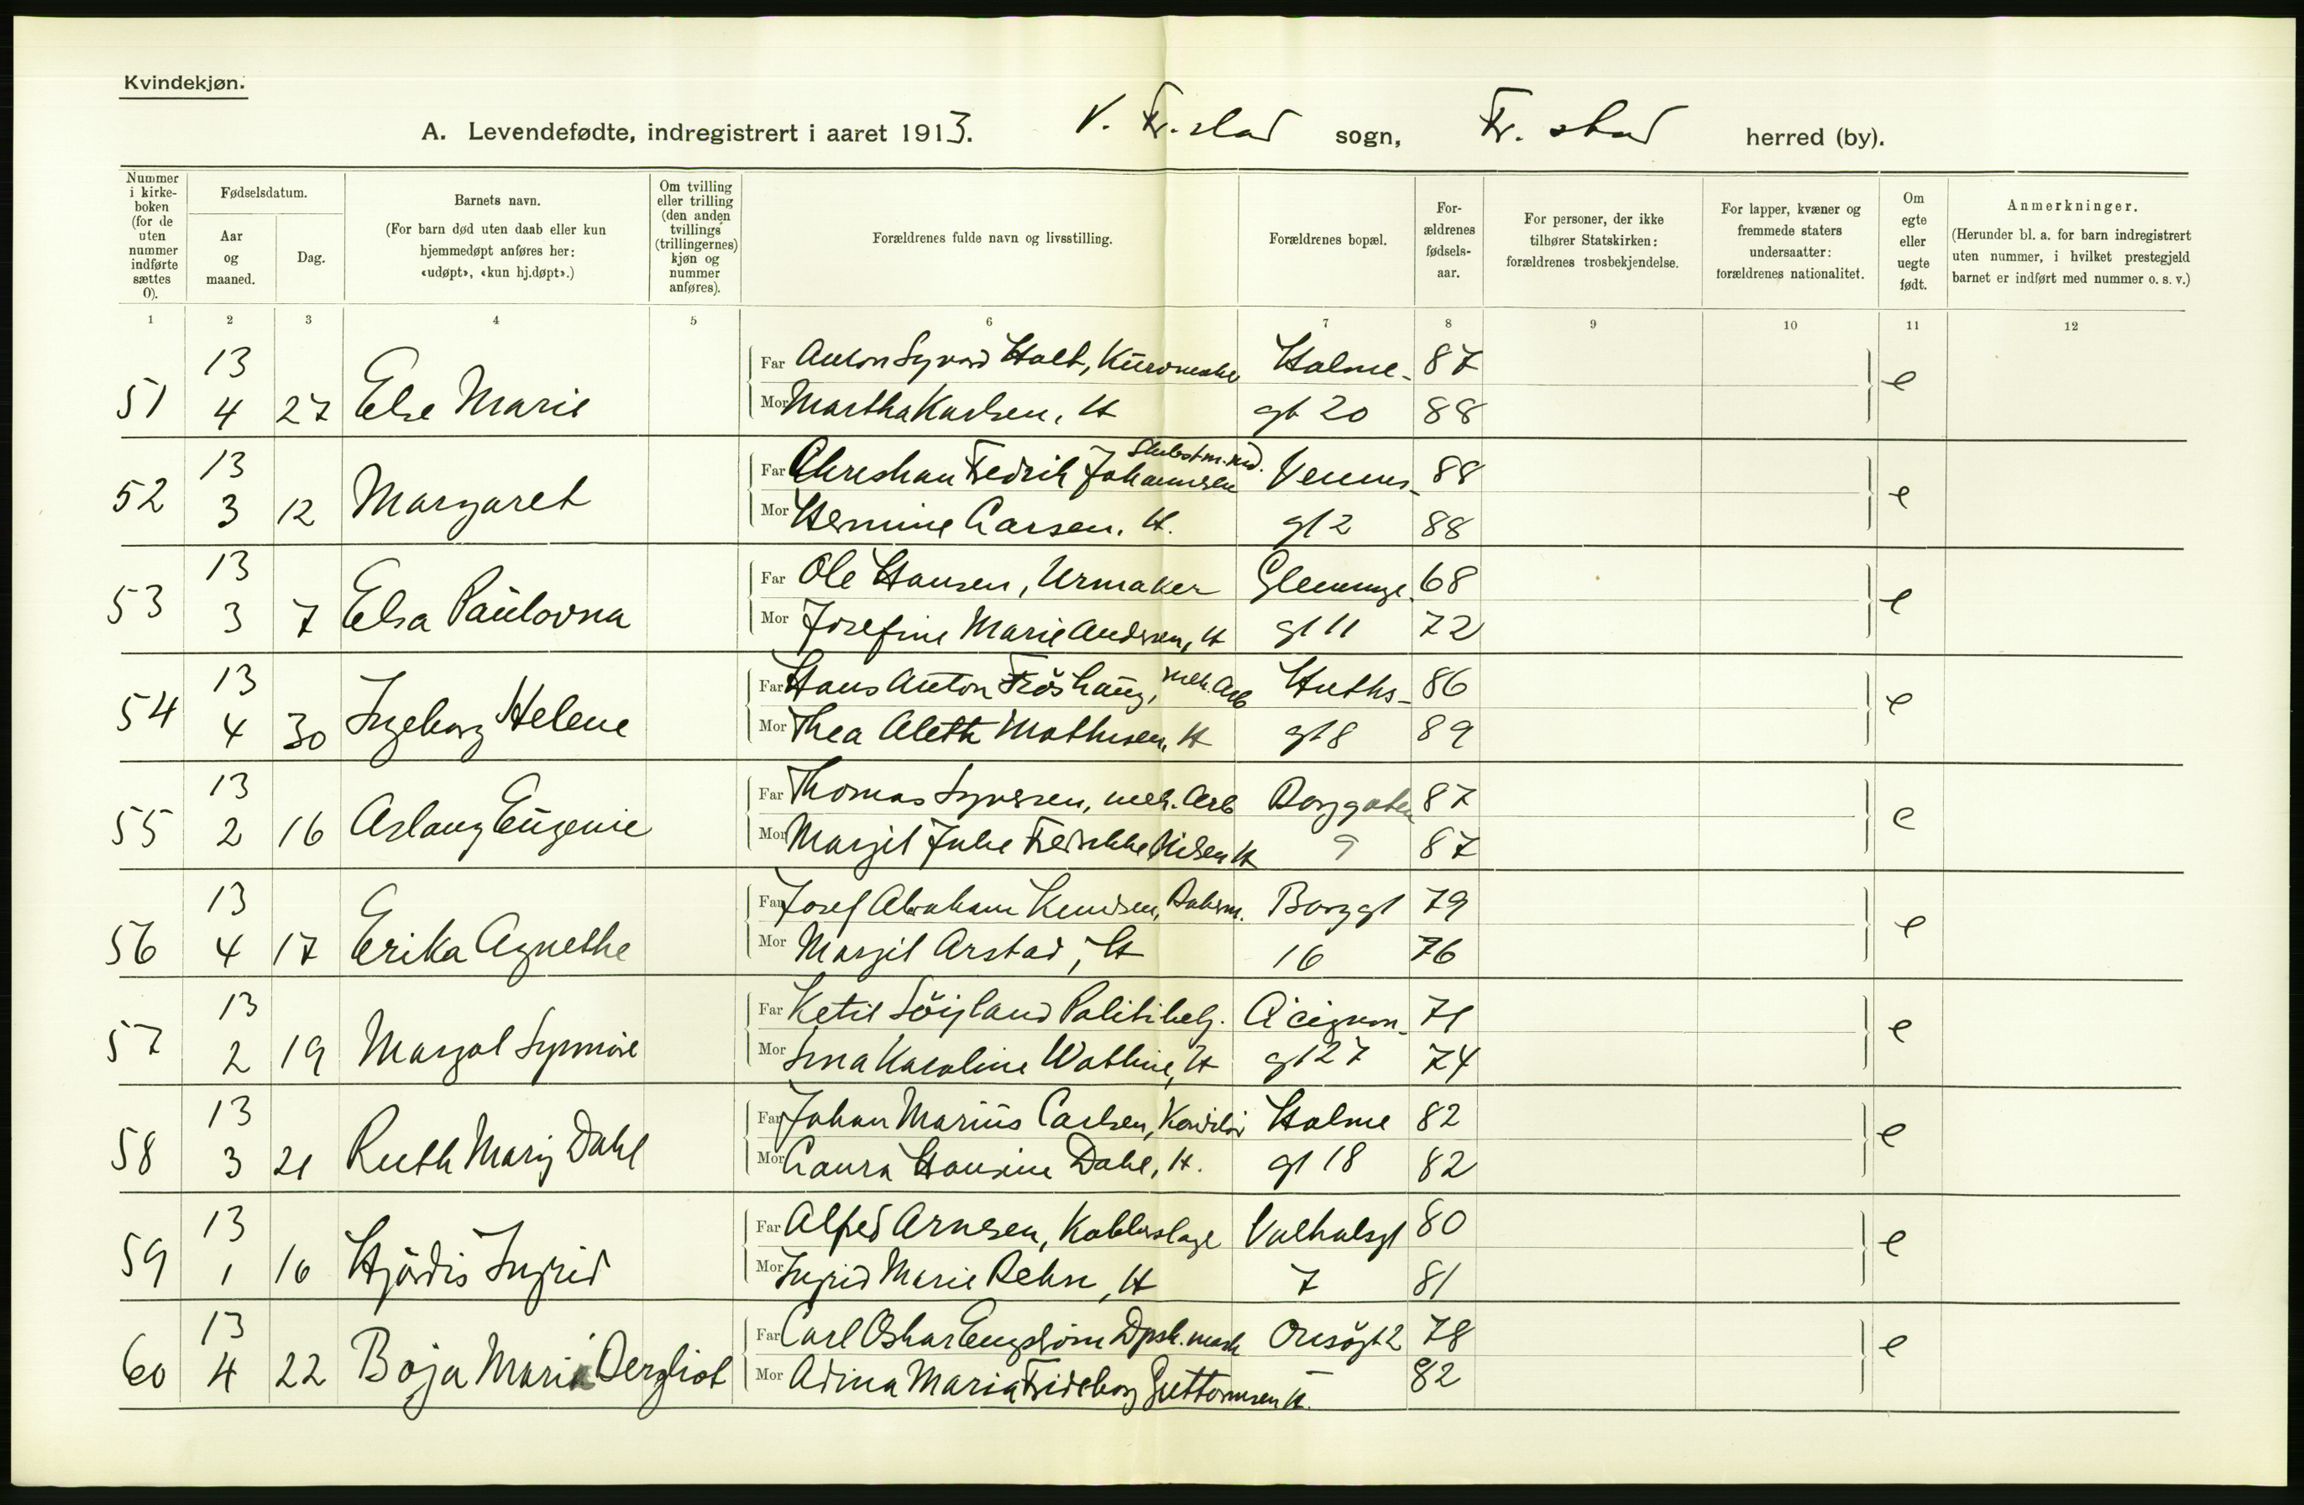 Kvindekjøn.
A. Levendefødte, indregistrert i aaret 1913. V. Fr.stad sogn, Fr. stad herred (by).
Nummer i kirke-boken (for de uten nummer indførte sættes 0).
Fødselsdatum.
Aar og maaned.
Dag.
Barnets navn.
(For barn død uten daab eller kun hjemmedøpt anføres her: «udøpt», «kun hj.døpt».)
Om tvilling eller trilling (den anden tvillings (trillingernes) kjøn og nummer anføres).
Forældrenes fulde navn og livsstilling.
Forældrenes bopæl.
For-ældrenes fødsels-aar.
For personer, der ikke tilhører Statskirken: forældrenes trosbekjendelse.
For lapper, kvæner og fremmede staters undersaatter: forældrenes nationalitet.
Om egte eller uegte født.
Anmerkninger.
(Herunder bl. a. for barn indregistrert uten nummer, i hvilket prestegjeld barnet er indført med nummer o. s. v.)
1 2 3 4 5 6 7 8 9 10 11 12
13 Far Anton Syvard Holt, Holme- 87
51 4 27 Else Marie Mor Martha Karlsen, H gt 20 88 e
13 Far Christian Fredrik Johannesen Venus- 88
52 3 12 Margaret Mor Hermine Larsen, H. gt 2 88 e
13 Far Ole Hansen, Urmaker 68
53 3 7 Elsa Paulovna Mor Josefine Marie Andersen, H gt 11 72 e
13 Far Hans Anton Fröshaug, mek. Arb Huths- 86
54 4 30 Ingeborg Helene Mor Thea Aleth Mathisen, H gt 8 89 e
13 Far Thomas Syversen, mek. Arb Borggaten 87
55 2 16 Aslaug Eugenie Mor Margit Julie Fredrikke Nilsen H 9 87 e
13 Far Josef Abraham Knudsen, Borggt 79
56 4 17 Erika Agnethe Mor Margit Arstad, H 16 76 e
13 Far Ketil Söyland Politibetj. 71
57 2 19 Margot Synnöve Mor Karoline H gt 27 74 e
13 Far Johan Marius Carlsen, Konditor Holme 82
58 3 21 Ruth Mary Dahl Mor Laura Hansine Dahl, H. gt 18 82 e
13 Far Alfred Arnesen, Kobberslage Valhalsgt 80
59 1 16 Hjördis Ingrid Mor Ingrid Marie Rehn, H 7 81 e
13 Far Carl Oskar Engström Dpsk. mask Onsögt 2 78
60 4 22 Boja Maria Bergliot Mor Adina Maria Frideborg Guttormsen H. 82 e